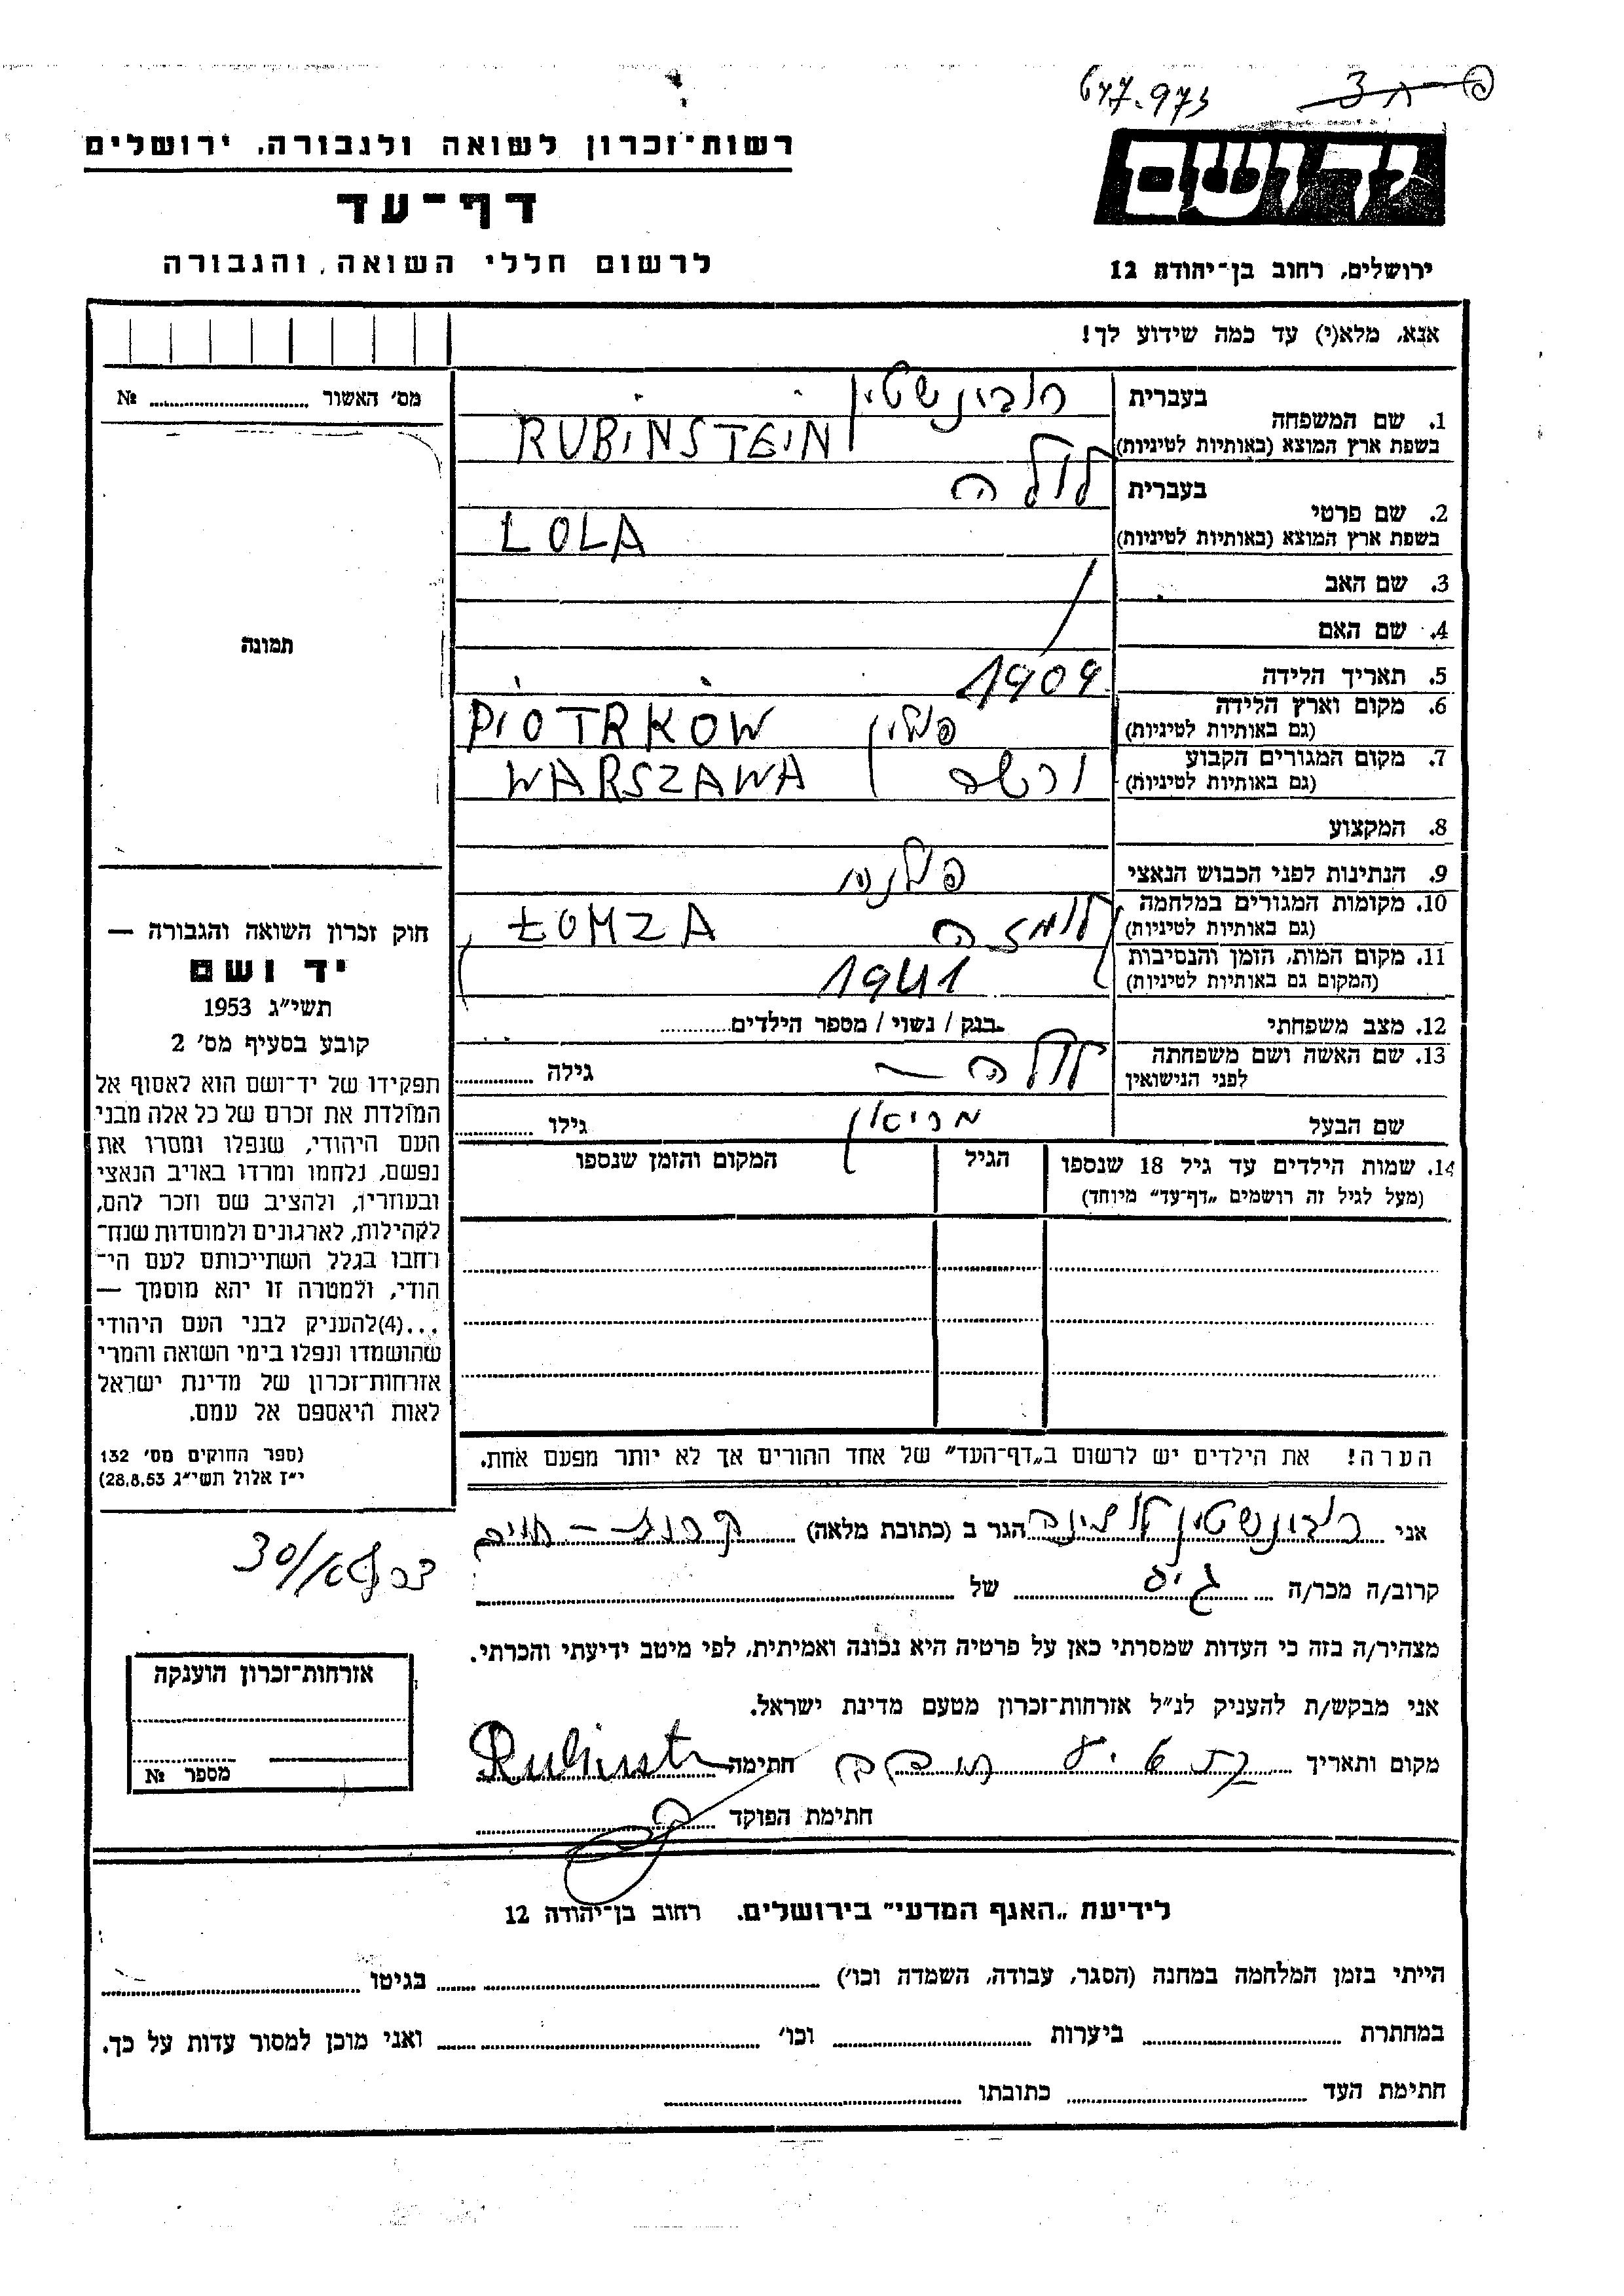 677.973
רשות־זכרון לשואה ולגבורה. ירושלים
דף־עד
לרשום חללי השואה והגבורה
יד ושם
ירושלים, רחוב בן־יהודה 12
אנא, מלא(י) עד כמה שידוע לך!
מס׳ האשור ........ №
תמונה
חוק זכרון השואה והגבורה —
יד ושם
תשי״ג 1953
קובע בסעיף מס׳ 2
תפקידו של יד־ושם הוא לאסוף אל
המולדת את זכרם של כל אלה מבני
העם היהודי, שנפלו ומסרו את
נפשם, נלחמו ומרדו באויב הנאצי
ובעוזריו, ולהציב שם וזכר להם,
לקהילות, לארגונים ולמוסדות שנח־
רחבו בגלל השתייכותם לעם הי־
הודי, ולמטרה זו יהא מוסמך —
...(4)להעניק לבני העם היהודי
שהושמדו ונפלו בימי השואה והמרי
אזרחות־זכרון של מדינת ישראל
לאות היאספם אל עמם.
(ספר החוקים מס׳ 132
י״ז אלול תשי״ג 28.8.53)
1. שם המשפחה בעברית רובינשטיין
בשפת ארץ המוצא (באותיות לטיניות) RUBINSTEIN
2. שם פרטי בעברית לולה
בשפת ארץ המוצא (באותיות לטיניות) LOLA
3. שם האב
4. שם האם
5. תאריך הלידה 1909
6. מקום וארץ הלידה (גם באותיות לטיניות) פולין PIOTRKOW
7. מקום המגורים הקבוע (גם באותיות לטיניות) ורשה WARSZAWA
8. המקצוע
9. הנתינות לפני הכבוש הנאצי פולנית
10. מקומות המגורים במלחמה (גם באותיות לטיניות) לומזה ŁOMZA
11. מקום המות, הזמן והנסיבות (המקום גם באותיות לטיניות) 1941
12. מצב משפחתי רווק / נשוי / מספר הילדים........
13. שם האשה ושם משפחתה לפני הנישואין לולה — גילה ........
שם הבעל מריאן גילו ........
14. שמות הילדים עד גיל 18 שנספו הגיל המקום והזמן שנספו
(מעל לגיל זה רושמים „דף־עד״ מיוחד)
הערה! את הילדים יש לרשום ב„דף־העד״ של אחד ההורים אך לא יותר מפעם אחת.
אני רובינשטיין הגר ב (כתובת מלאה) קרית - חיים
30/
קרוב/ה מכר/ה גיס של ........
מצהיר/ה בזה כי העדות שמסרתי כאן על פרטיה היא נכונה ואמיתית, לפי מיטב ידיעתי והכרתי.
אני מבקש/ת להעניק לנ״ל אזרחות־זכרון מטעם מדינת ישראל.
מקום ותאריך חתימה Rubinst
חתימת הפוקד
אזרחות־זכרון הוענקה
מספר №
לידיעת „האגף המדעי״ בירושלים. רחוב בן־יהודה 12
הייתי בזמן המלחמה במחנה (הסגר, עבודה, השמדה וכו׳) ........ בגיטו ........
במחתרת ........ ביערות ........ וכו׳ ........ ואני מוכן למסור עדות על כך.
חתימת העד ........ כתובתו ........